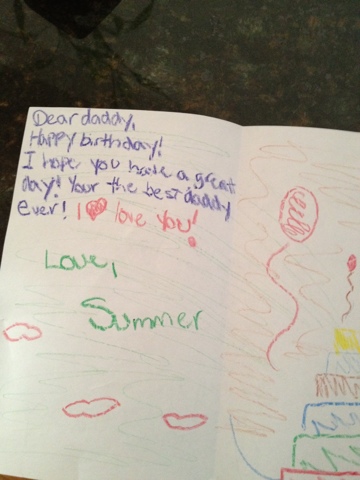 Dear daddy,
Happy birthday!
I hope you have a great
day! Your the best daddy
ever! I ❤ love you!
Love,
Summer